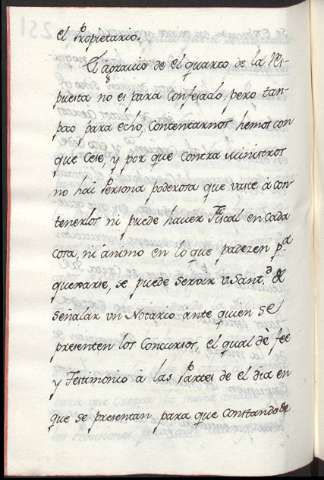 el Propietario.
El agravio de el quarto de la Ri-
puesta no es para Consejado, pero tan-
poco para echo, Contentarnos hemos con
que Cese, y por que Contra Ministros
no hai Persona poderosa que vaste à con-
tenerlos ni puede haver Fiscal en cada
cosa, ni animo en lo que padezen pa
quexarse, se puede Servir V. Santd. de
señalar un Notario ante quien Se
presenten los Concursos, el qual de fee
y Testimonio à las Partes de el dia en
que se presentan para que Constando de